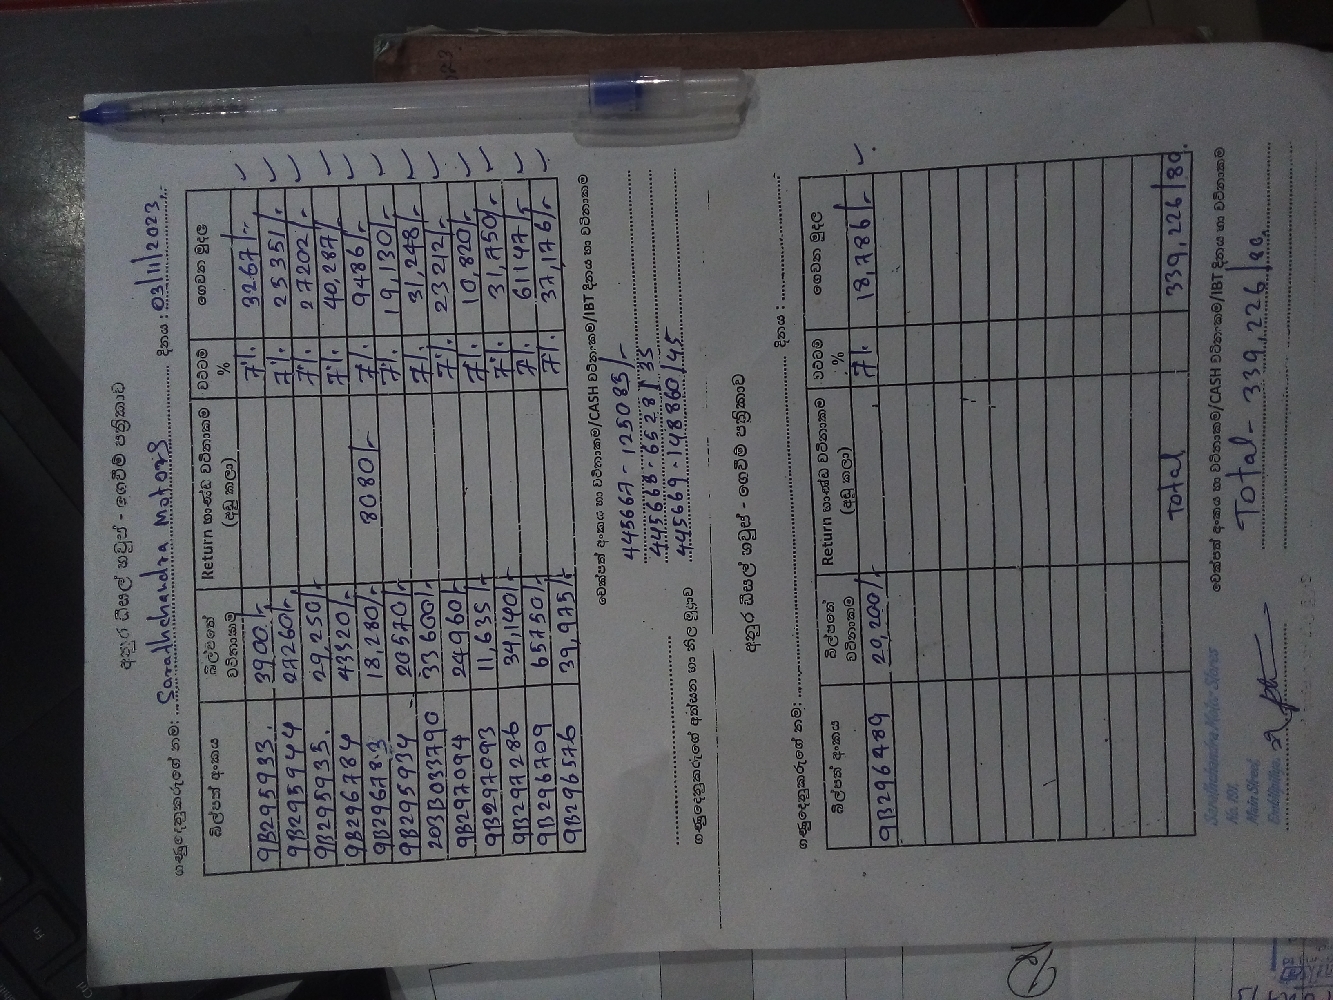 අනුර ඩීසල් හවුස් - ගෙවීම් පත්‍රිකාව
ගණුදෙනුකරුගේ නම: Sarathchandra Motors දිනය : 03/11/2023
බිල්පත් අංකය බිල්පතේ වටිනාකම Return භාණ්ඩ වටිනාකම (අඩු කලා) වට්ටම් % ගෙවන මුදල
9B295933. 3900/- 7%. 3267/- ✓
9B295944 27260/- 7%. 25351/- ✓
9B295935. 29,250/- 7%. 27202/- ✓
9B296784 43320/- 7%. 40,287/- ✓
9B296783 18,280/- 8080/- 7%. 9486/- ✓
9B295934 20570/- 7%. 19,130/- ✓
203B033790 33600/- 7%. 31,248/- ✓
9B297094 24960/- 7%. 23212/- ✓
9B297093 11,635/- 7%. 10,820/- ✓
9B297286 34,140/- 7%. 31,750/- ✓
9B296709 65750/- 7%. 61147/- ✓
9B296576 39,975/- 7%. 37,176/- ✓
චෙක්පත් අංකය හා වටිනාකම/CASH වටිනාකම/IBT දිනය හා වටිනාකම
445667 - 125083/-
445668 - 65281/35
445669 - 148860/45
ගණුදෙනුකරුගේ අත්සන හා නිල මුද්‍රාව
අනුර ඩීසල් හවුස් - ගෙවීම් පත්‍රිකාව
ගණුදෙනුකරුගේ නම: දිනය :
බිල්පත් අංකය බිල්පතේ වටිනාකම Return භාණ්ඩ වටිනාකම (අඩු කලා) වට්ටම් % ගෙවන මුදල
9B296489 20,200/- 7%. 18,786/- ✓
Total 339,226/80.
චෙක්පත් අංකය හා වටිනාකම/CASH වටිනාකම/IBT දිනය හා වටිනාකම
Total - 339,226/80.
Sarathchandra Motor Stores
No. 101,
Main Street,
Embilipitiya.